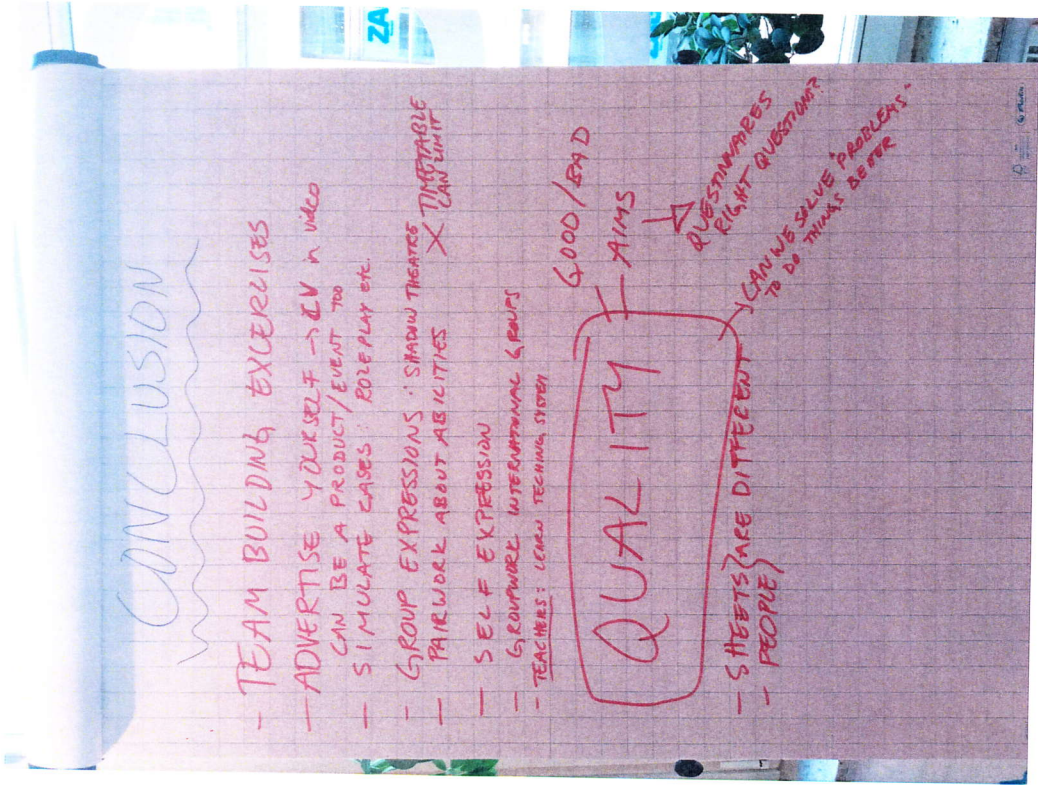 ZA
CONCLUSION
- TEAM BUILDING EXCERCISES
- ADVERTISE YOURSELF → CV in video
CAN BE A PRODUCT/EVENT TOO
- SIMULATE CASES: ROLEPLAY etc.
- GROUP EXPRESSIONS: SHADOW THEATRE
- PAIRWORK ABOUT ABILITIES X TIMETABLE
CAN LIMIT
- SELF EXPRESSION
- GROUPWORK INTERNATIONAL GROUPS
- TEACHERS: LEARN TECHING SYSTEM
QUALITY
GOOD/BAD
AIMS
QUESTINNAIRES
RIGHT QUESTIONS?
- SHEETS } ARE DIFFERENT
- PEOPLE }
CAN WE SOLVE "PROBLEMS"
TO DO THINGS BETTER